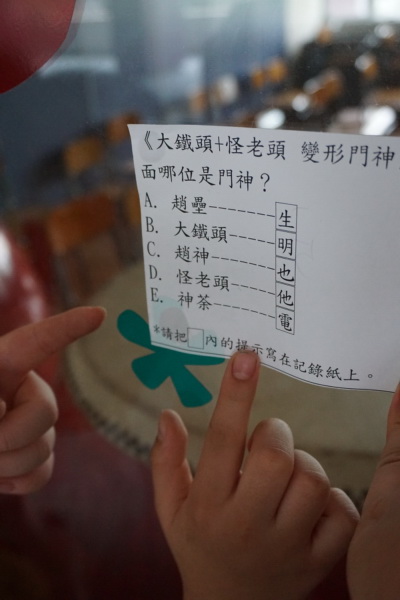 《大鐵頭+怪老頭 變形門神
面哪位是門神？
A. 趙壘-------生
B. 大鐵頭-----明
C. 趙神-------也
D. 怪老頭-----他
E. 神茶-------電
*請把□內的提示寫在記錄紙上。